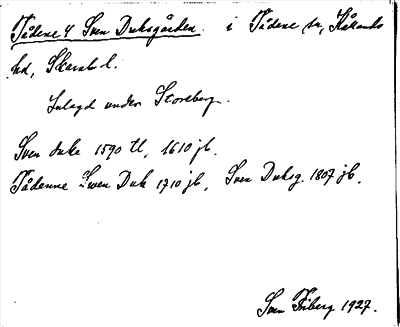 Tådene 4 Sven Duksgården. i Tådene sn, Kåkands
hd, Skarab. l.
Inlagd under Storeberg.
Sven duke 1590 tl, 1610 jb.
Tådenne Swen Duk 1710 jb, Sven Duksg. 1807 jb.
Sven Friberg 1927.